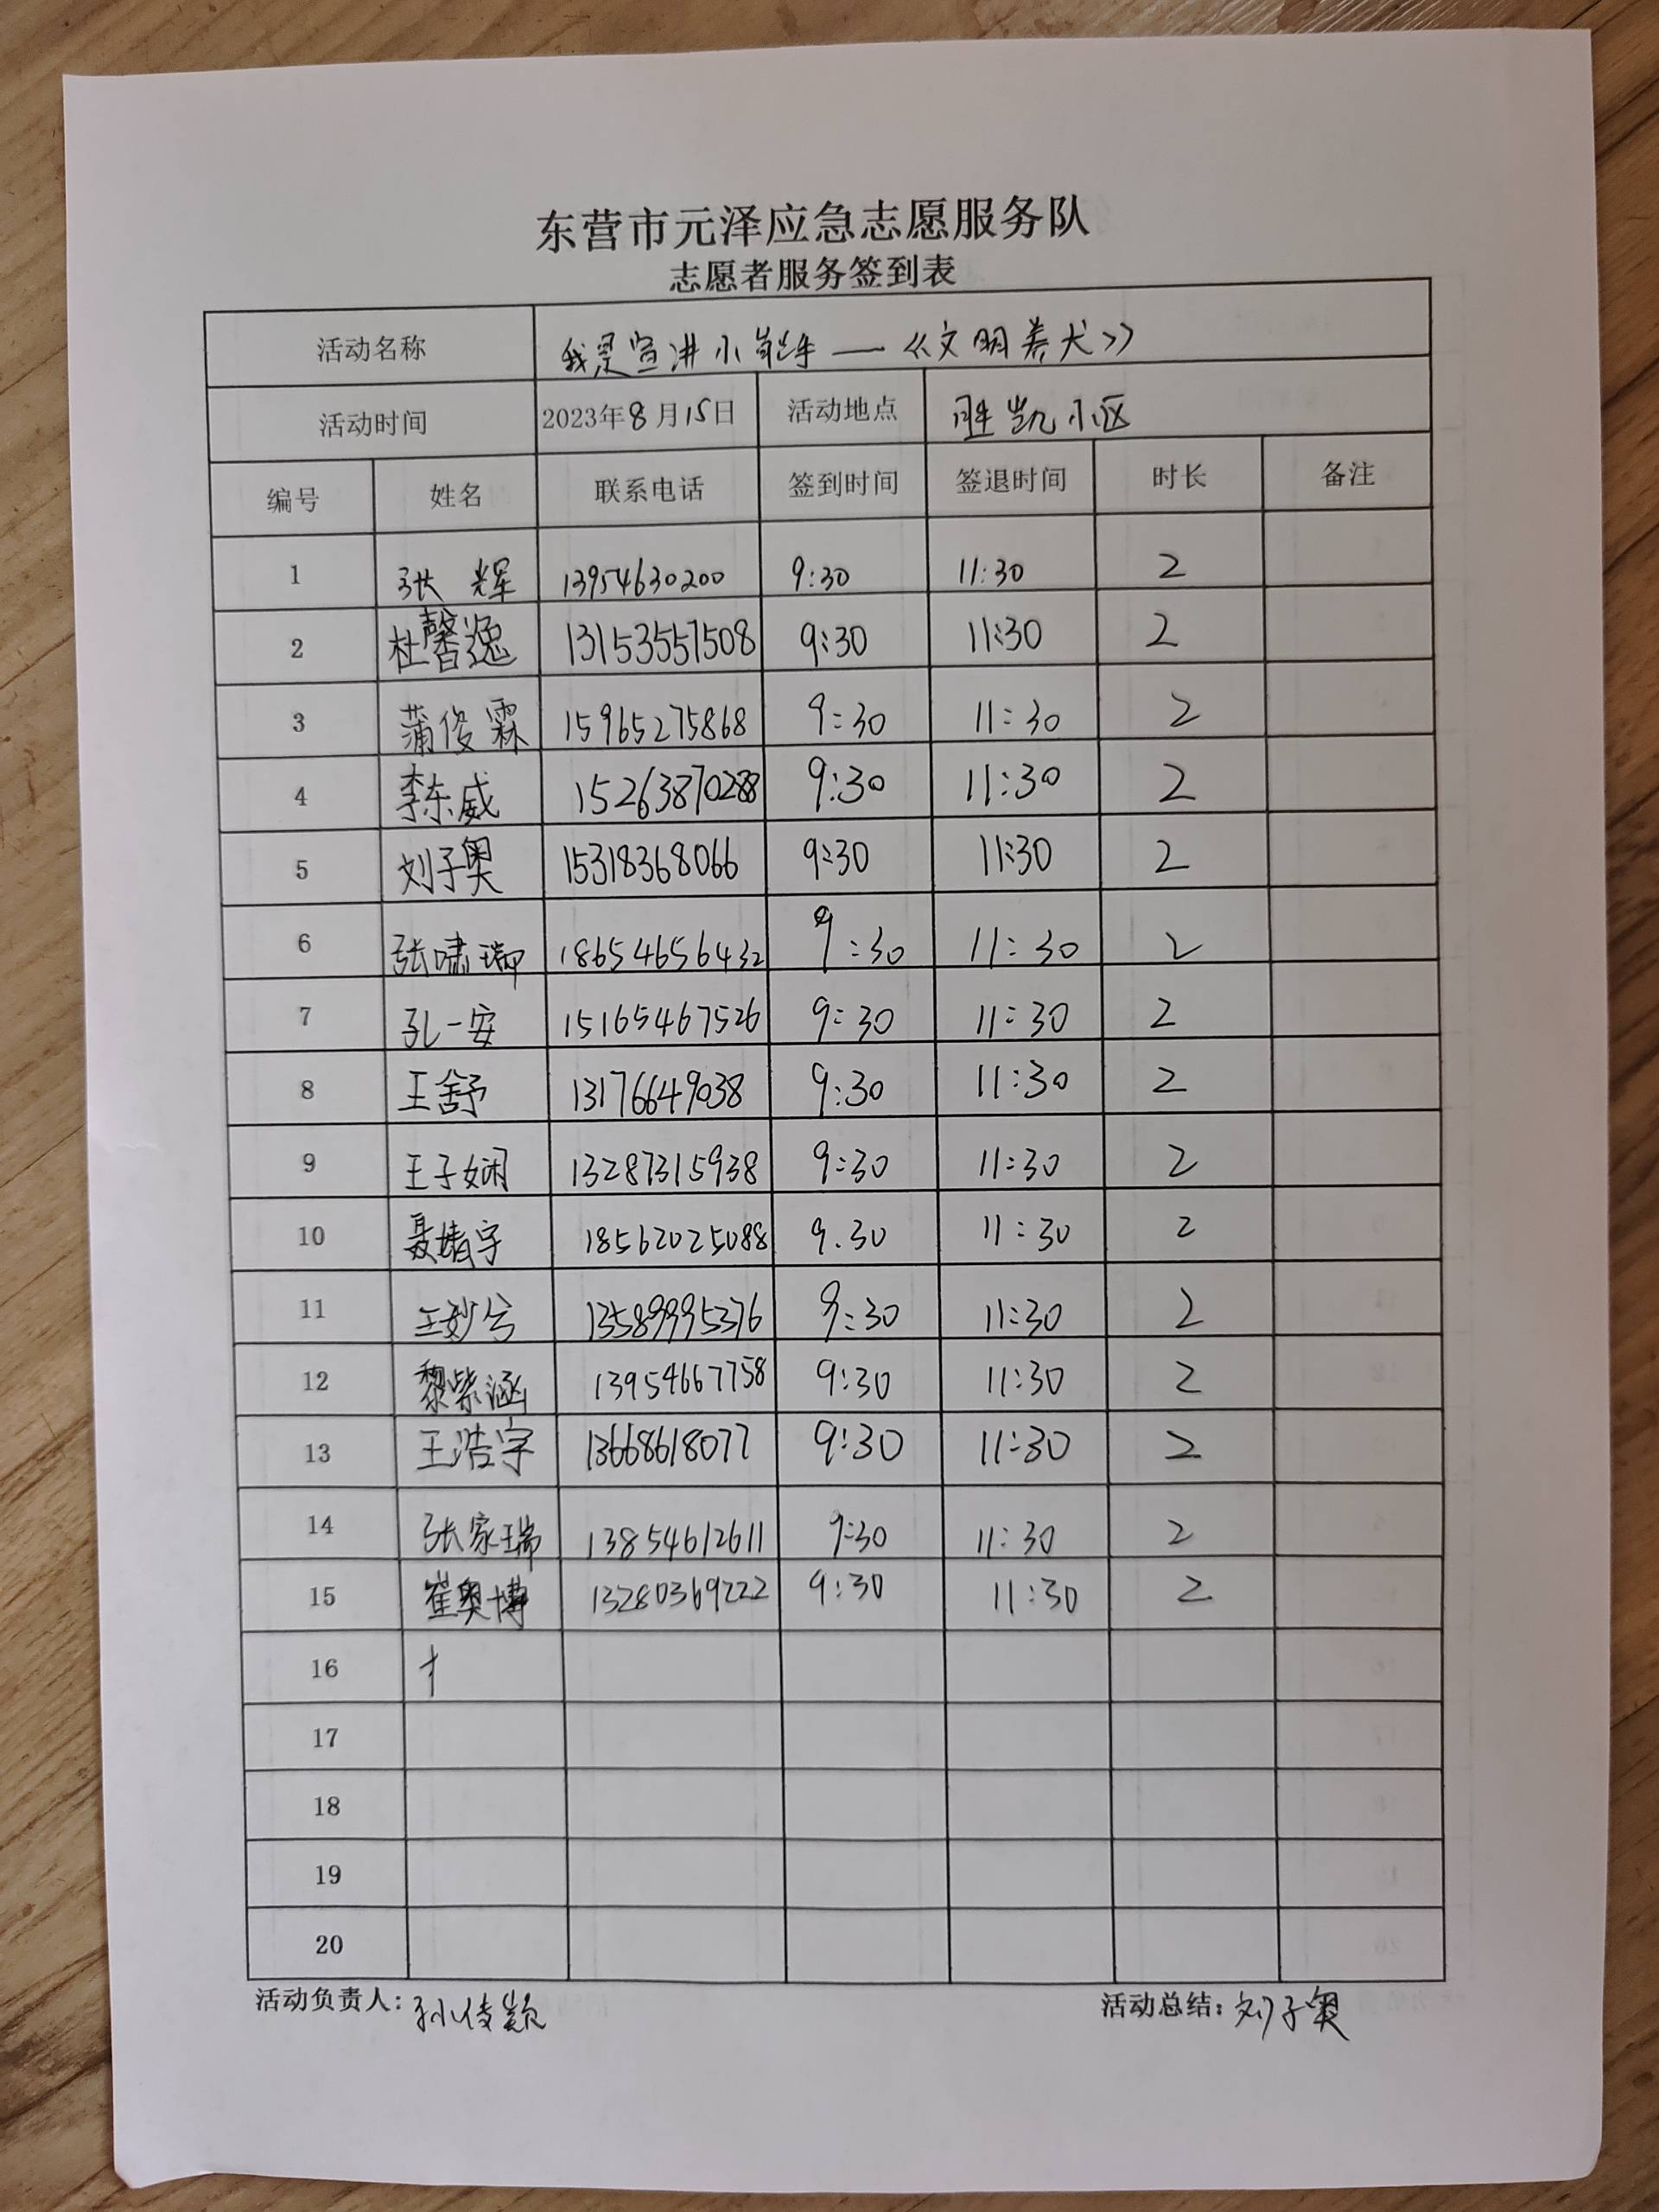 东营市元泽应急志愿服务队
志愿者服务签到表
活动名称 我是宣讲小能手——《文明养犬》
活动时间 2023年8月15日 活动地点 胜凯小区
编号 姓名 联系电话 签到时间 签退时间 时长 备注
1 张辉 13954630200 9:30 11:30 2
2 杜馨逸 13153557508 9:30 11:30 2
3 蒲俊霖 15965275868 9:30 11:30 2
4 李东威 15263870288 9:30 11:30 2
5 刘子奥 15318368066 9:30 11:30 2
6 张啸瑞 18654656432 9:30 11:30 2
7 孔一安 15165467526 9:30 11:30 2
8 王舒 13176649038 9:30 11:30 2
9 王子娴 13287315938 9:30 11:30 2
10 聂婧宇 18562025088 9:30 11:30 2
11 王妙兮 13589995376 9:30 11:30 2
12 黎紫涵 13954667758 9:30 11:30 2
13 王浩宇 13668618077 9:30 11:30 2
14 张家瑞 13854612611 9:30 11:30 2
15 崔奥博 13280369222 9:30 11:30 2
16
17
18
19
20
活动负责人: 活动总结: 刘子奥